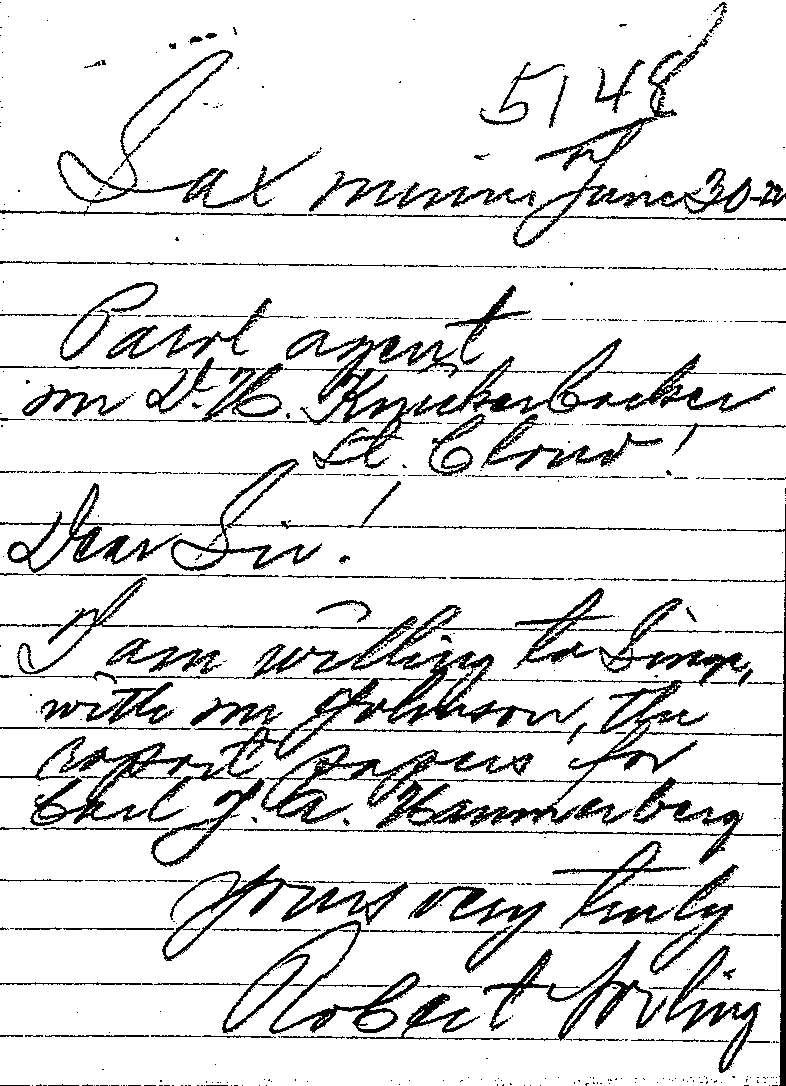 5148
Sax Minn June 30-22
Parol agent
mr D. H. Knickerbocker
St. Cloud!
Dear Sir!
I am willing to Singn,
with mr Johnson, the
raport papers for
Carl J. A. Hammerberg
yours very truly
Robert